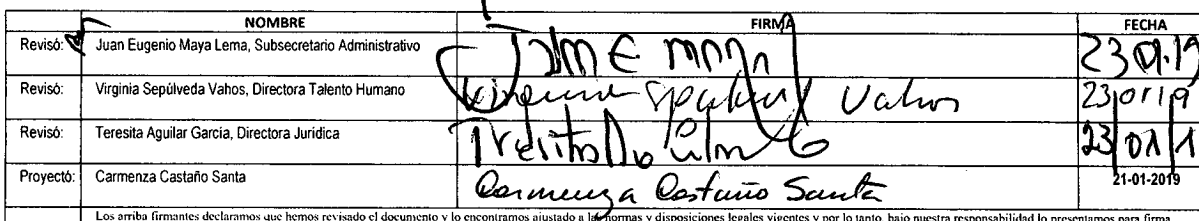 NOMBRE FIRMA FECHA
Revisó: Juan Eugenio Maya Lema, Subsecretario Administrativo 23 01.19
Revisó: Virginia Sepúlveda Vahos, Directora Talento Humano Vahos 23/01/19
Revisó: Teresita Aguilar García, Directora Jurídica 23/01/1
Proyectó: Carmenza Castaño Santa Carmenza Castaño Santa 21-01-2019
Los arriba firmantes declaramos que hemos revisado el documento y lo encontramos ajustado a las normas y disposiciones legales vigentes y por lo tanto, bajo nuestra responsabilidad lo presentamos para firma.